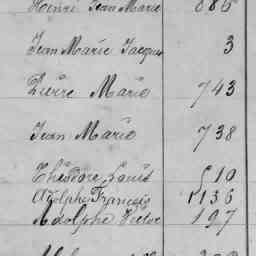 Henri Jean Marie 885
Jean Marie Jacques 3
Pierre Mario 743
Jean Mario 738
Théodore Louis 510
Adolphe François 1136
Adolphe Victor 197